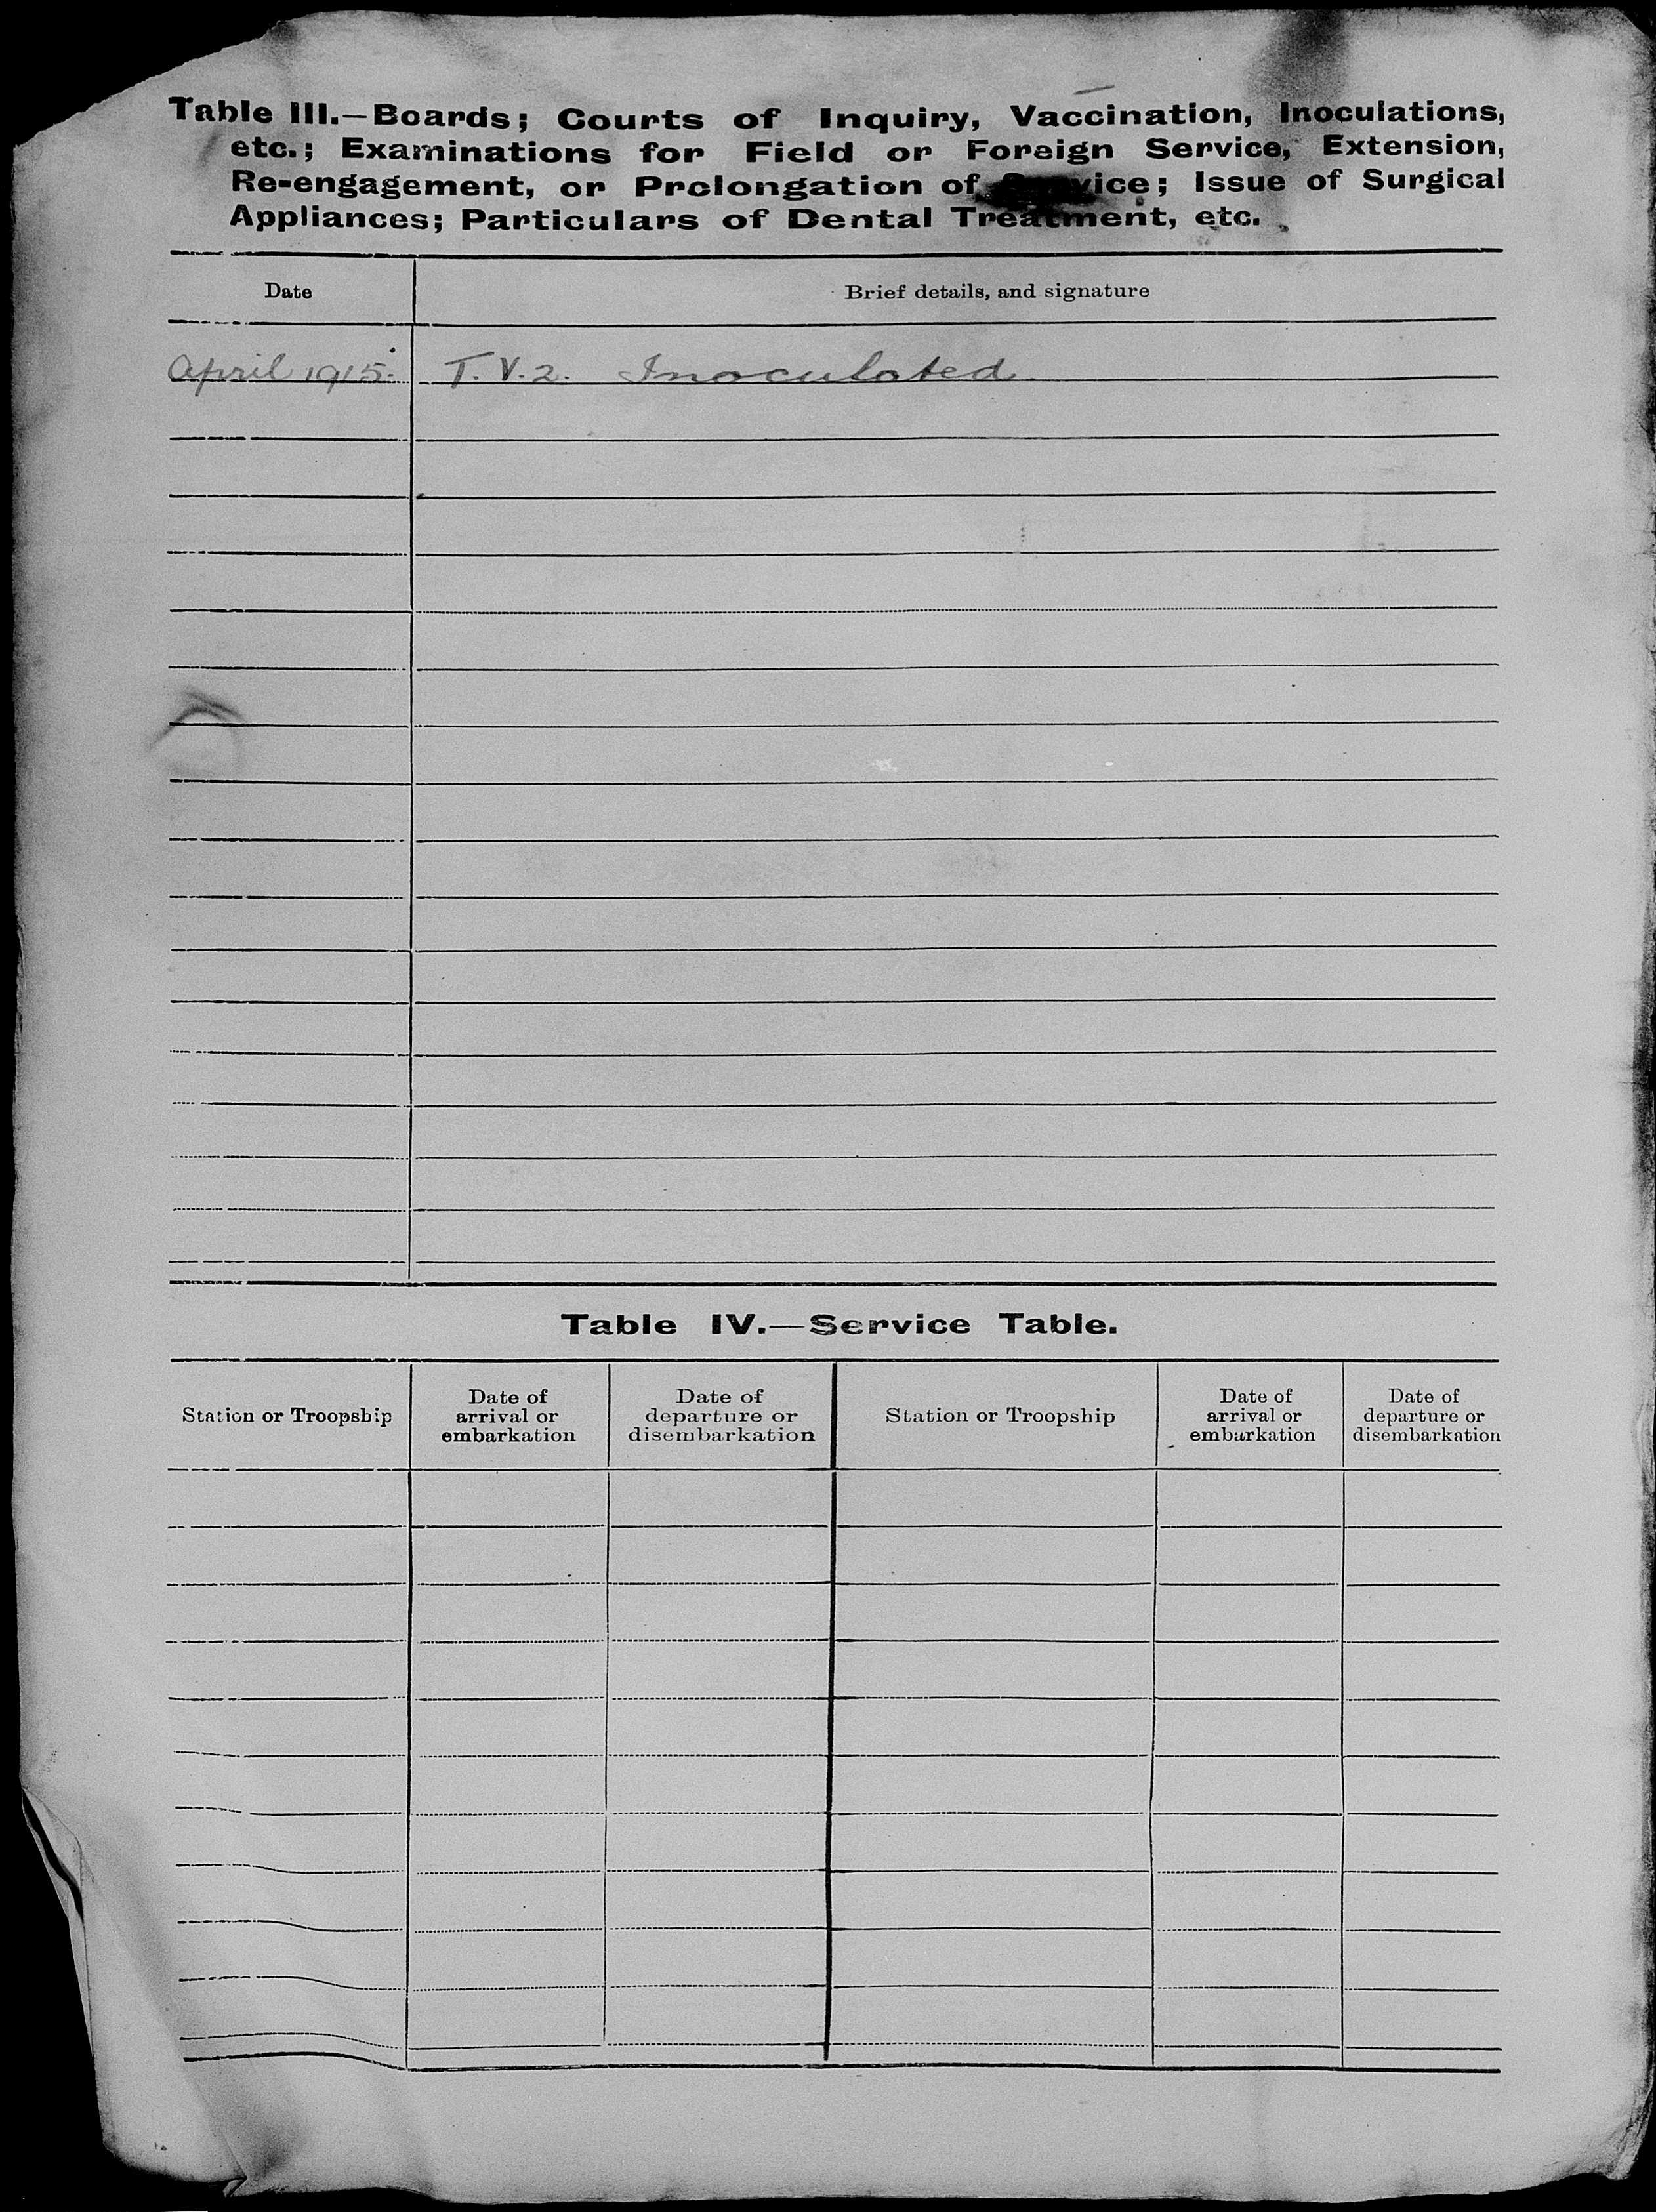 Table III.—Boards; Courts of Inquiry, Vaccination, Inoculations,
etc.; Examinations for Field or Foreign Service, Extension,
Re-engagement, or Prolongation of Service; Issue of Surgical
Appliances; Particulars of Dental Treatment, etc.
Date Brief details, and signature
April 1915. T.V.2. Inoculated.
Table IV.—Service Table.
Station or Troopship Date of arrival or embarkation Date of departure or disembarkation Station or Troopship Date of arrival or embarkation Date of departure or disembarkation